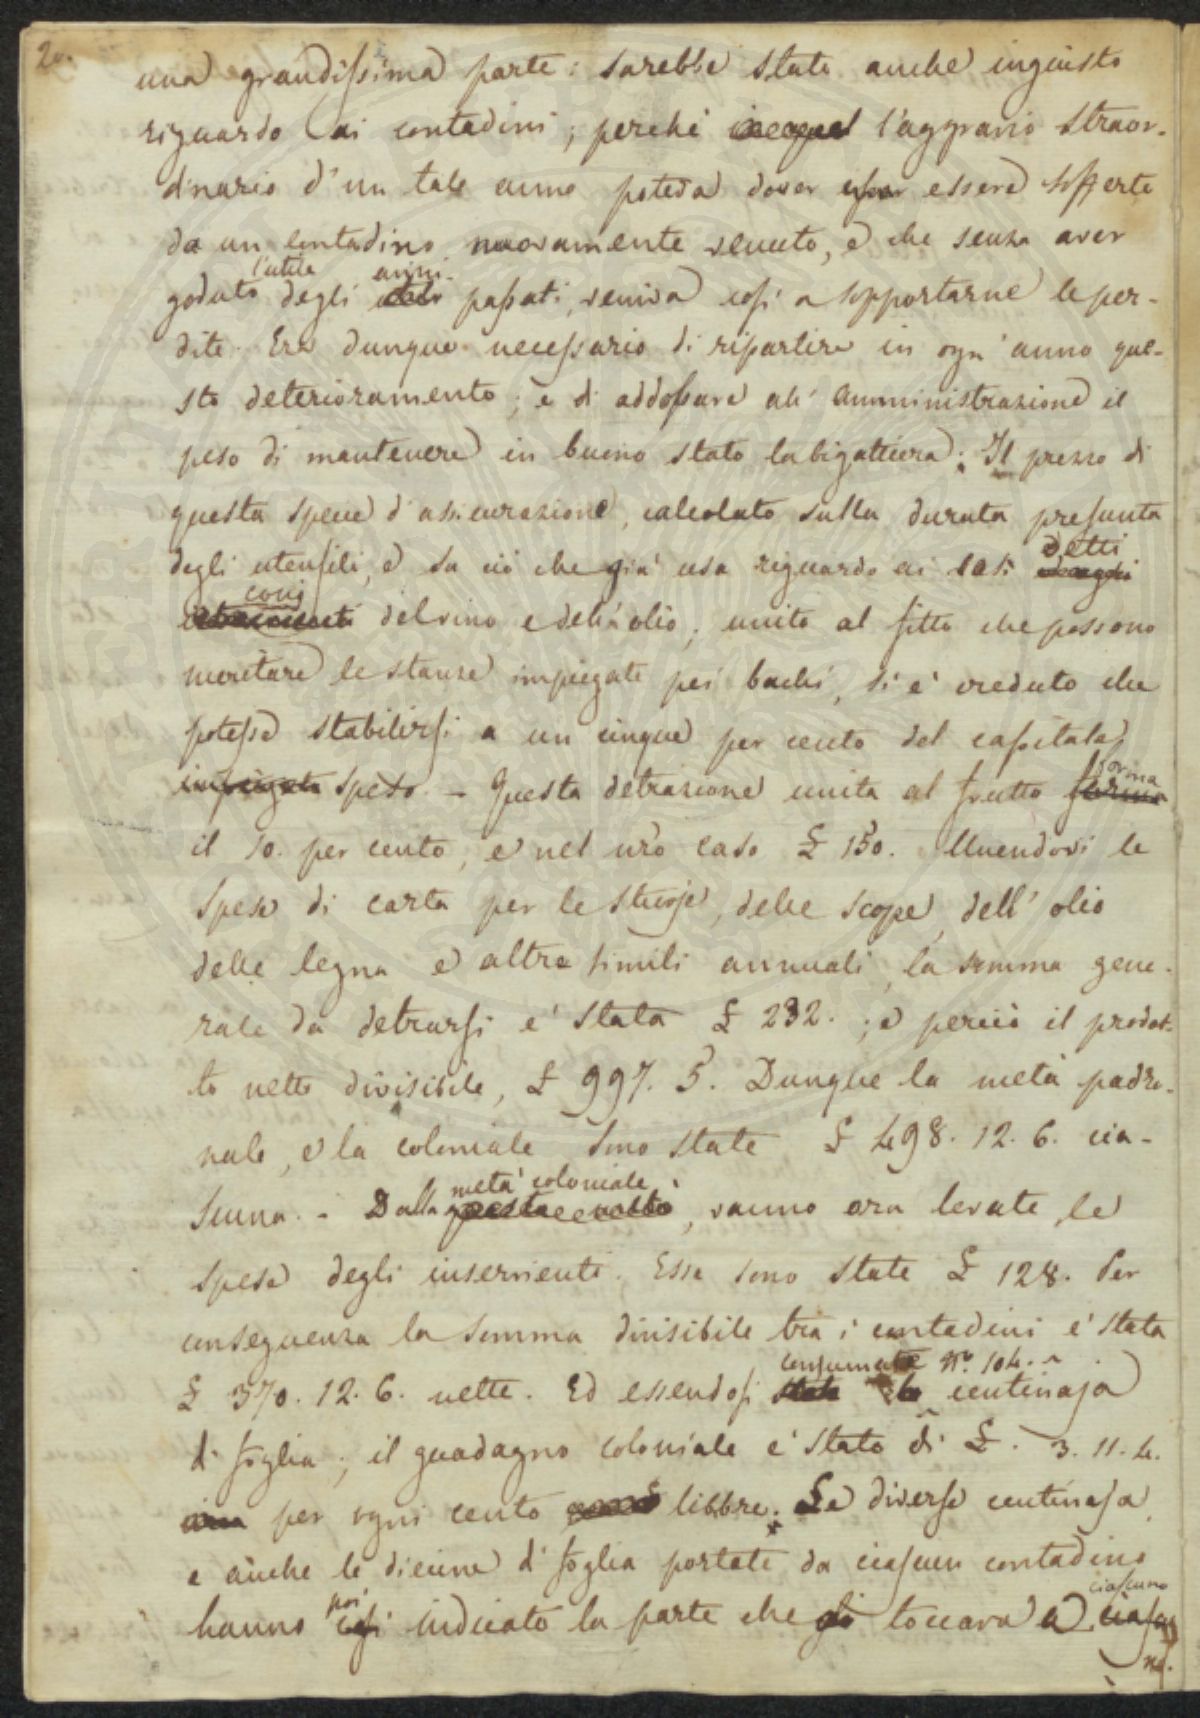 20.
una grandissima parte: sarebbe stato anche ingiusto
riguardo ai contadini; perché l'aggravio straor-
dinario d'un tale anno poteva dover essere sofferto
da un contadino nuovamente venuto, e che senza aver
goduto l'utile degli anni passati, veniva così a sopportarne le per-
dite. Era dunque necessario di ripartire in ogn'anno que-
sto deterioramento; e di addossare all'Amministrazione il
peso di mantenere in buono stato la bigattiera. Il prezzo di
questa specie d'assicurazione, calcolato sulla durata presunta
degli utensili, e su ciò che già usa riguardo ai così detti
conj del vino e dell'olio; unito al fitto che possono
meritare le stanze impiegate pei bachi, si è creduto che
potesse stabilirsi a un cinque per cento del capitale
impiegato speso. - Questa detrazione unita al frutto forma
il 10. per cento, e nel nro caso £ 150. Unendovi le
spese di carta per le stuoje, delle scope, dell'olio
delle legna e altre simili annuali, la somma gene-
rale da detrarsi è stata £ 232.; e perciò il prodot-
to netto divisibile, £ 997. 5. Dunque la metà padro-
nale, e la coloniale sono state £ 498. 12. 6. cia-
scuna. - Dalla metà coloniale, vanno ora levate le
spese degli inservienti. Esse sono state £ 128. Per
conseguenza la somma divisibile tra i contadini è stata
£ 370. 12. 6. nette. Ed essendosi consumate No. 104. centinaja
di foglia; il guadagno coloniale è stato di £. 3. 11. 4.
per ogni cento libbre. Le diverse centinaja,
e anche le diecine di foglia portate da ciascun contadino
hanno poi indicato la parte che toccava a ciascuno